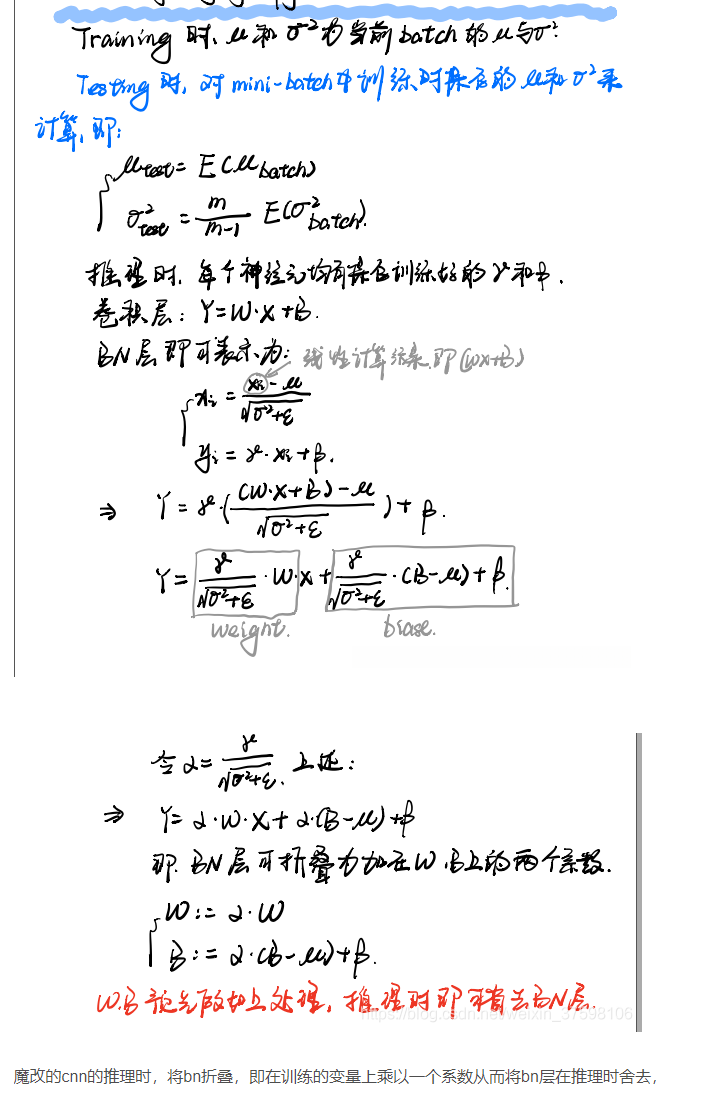 Training 时, μ和 σ²为当前batch的μ与σ².
Testing 时, 对mini-batch中训练时保存的μ和σ²来
计算, 即:
μtest = E(μbatch)
σ²test = m/(m-1) E(σ²batch).
推理时, 每个神经元均有保存训练好的γ和β.
卷积层: Y=W·X+B.
BN层即可表示为: 线性计算结果.即(WX+B)
xi = (xi-μ)/√(σ²+ε)
yi = γ·xi+β.
⇒ Y = γ·( ((W·X+B)-μ)/√(σ²+ε) )+β.
Y = γ/√(σ²+ε)·W·X+γ/√(σ²+ε)·(B-μ)+β.
weight. biase.
令α= γ/√(σ²+ε). 上述:
⇒ Y= α·W·X+α·(B-μ)+β
即. BN层可折叠为加在W.B上的两个系数.
W := α·W
B := α·(B-μ)+β.
W.B预先做如上处理, 推理时即可省去BN层.
https://blog.csdn.net/weixin_37598106
魔改的cnn的推理时，将bn折叠，即在训练的变量上乘以一个系数从而将bn层在推理时舍去，